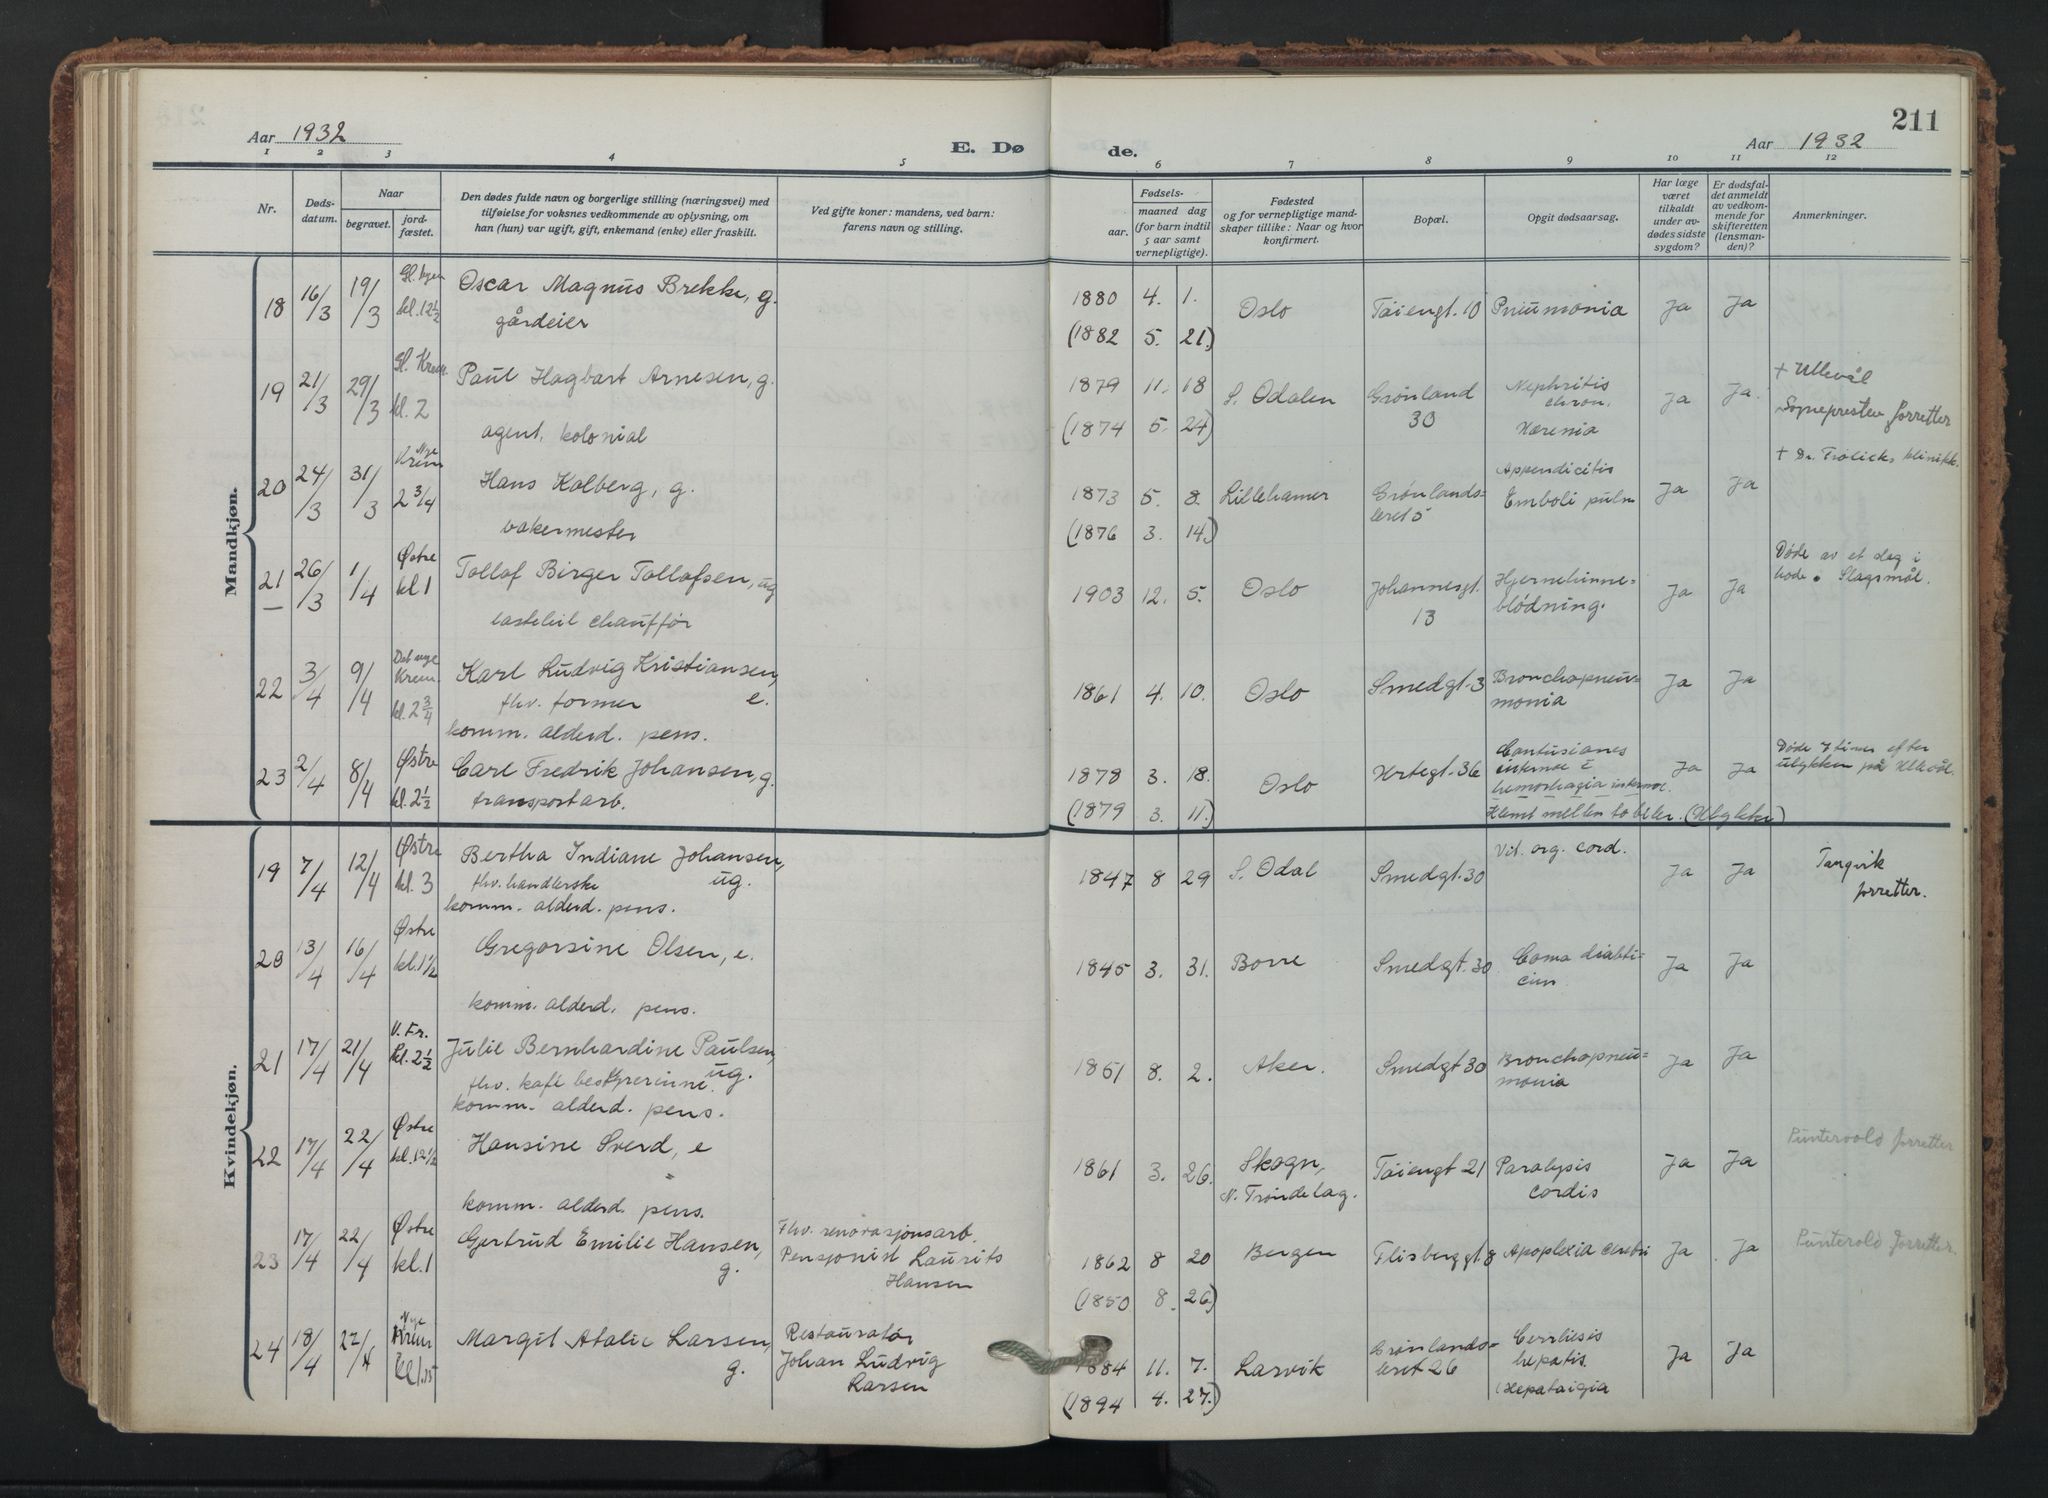 211
Aar 1932
E. Dø
de.
Aar 1932
1 2 3 4 5 6 7 8 9 10 11 12
Nr.
Døds-
datum.
Naar
begravet.
jord-
fæstet.
Den dødes fulde navn og borgerlige stilling (næringsvei) med
tilføielse for voksnes vedkommende av oplysning, om
han (hun) var ugift, gift, enkemand (enke) eller fraskilt.
Ved gifte koner: mandens, ved barn:
farens navn og stilling.
Fødsels-
aar.
maaned dag
(for barn indtil
5 aar samt
vernepligtige).
Fødested
og for vernepligtige mand-
skaper tillike: Naar og hvor
konfirmert.
Bopæl.
Opgit dødsaarsag.
Har læge
været
tilkaldt
under av-
dødes sidste
sygdom?
Er dødsfal-
det anmeldt
av vedkom-
mende for
skifteretten
(lensman-
den)?
Anmerkninger.
Mandkjøn.
18 16/3 19/3 kl. 12½ Oscar Magnus Brekke, g.
gårdeier
1880 4. 1. Oslo Tøiengt. 10 Pneumonia Ja Ja
(1882 5. 21.)
19 21/3 29/3 Gl. Krem. kl. 2 Paul Hagbart Arnesen, g.
agent, kolonial
1879 11. 18 S. Odalen Grønland 30 Nephritis chron. Ja Ja
(1874 5. 24)
+ Ullevål
Sognepresten forretter
20 24/3 31/3 Nye Krem 2 3/4 Hans Kolberg, g.
bakermester
1873 5. 8. Lillehamer Grønlands-
leret 5 Appendicitis
Emboli pulm Ja Ja
(1876 3. 14.)
+ Dr. Frølichs klinikk.
21 26/3 1/4 Østre kl. 1 Tollof Birger Tollofsen, ug
lastebil chauffør
1903 12. 5. Oslo Johannesgt.
13 Hjernehinne-
blødning. Ja Ja
Døde av et slag i
hode. Slagsmål.
22 3/4 9/4 Det nye Krem. kl. 2 3/4 Karl Ludvig Kristiansen,
fhv. former e.
komm. alderd. pens.
1861 4. 10. Oslo Smedgt. 3 Bronchopneu-
monia Ja Ja
23 2/4 8/4 Østre kl. 2½ Carl Fredrik Johansen, g.
transportarb.
1878 3. 18. Oslo Urtegt. 36 Contusiones
internae
hemorhagia Ja Ja
(1879 3. 11.)
Klemt mellem to biler. (Ulykke)
Døde 7 timer efter
ulykken på Ullevål.
Kvindekjøn.
19 7/4 12/4 Østre kl. 3 Bertha Indiane Johansen,
fhv. handlerske ug.
komm. alderd. pens.
1847 8 29 S. Odal Smedgt. 30 Vit. org. cord. Ja Ja
Tangvik
forretter.
20 13/4 16/4 Østre kl. 1½ Gregorsine Olsen, e.
komm. alderd. pens.
1845 3. 31. Borre Smedgt. 30 Coma diabti-
cum Ja Ja
21 17/4 21/4 V. Fr. kl. 2½ Julie Bernhardine Paulsen,
fhv. kafe bestyrerinne. ug.
komm. alderd. pens.
1851 8. 2. Aker. Smedgt 30 Bronchopneu-
monia Ja Ja
22 17/4 22/4 Østre kl. 12½ Hansine Sverd, e
komm. alderd. pens.
1861 3. 26. Skogn,
N. Trøndelag. Tøiengt 21 Paralysis
cordis Ja Ja
Puntervold forretter
23 17/4 22/4 Østre kl. 1 Gertrud Emilie Hansen,
g.
Fhv. renovasjonsarb.
Pensjonist Laurits
Hansen
1862 8 20 Bergen Flisberggt. 8 Apoplexia cerebri Ja Ja
(1850 8. 26)
Puntervold forretter.
24 18/4 22/4 Nye Krem kl 1.15 Margit Atalie Larsen,
g.
Restauratør
Johan Ludvig
Larsen
1884 11. 7. Larvik Grønlands-
leret 26 hepatis. Ja Ja
(1894 4. 27.)